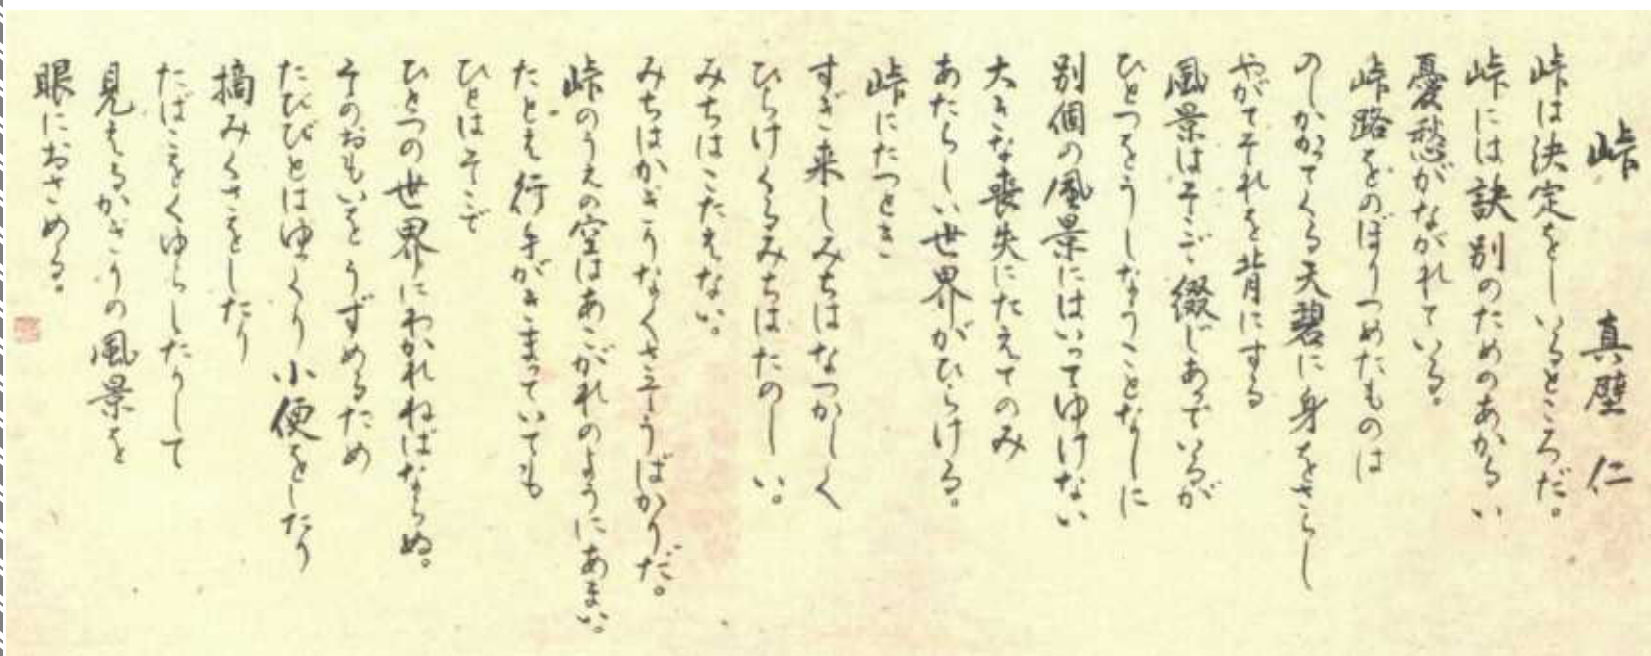 峠　　真壁　仁
峠は決定をしいるところだ。
峠には訣別のためのあかるい
憂愁がながれている。
峠路をのぼりつめたものは
のしかかってくる天碧に身をさらし
やがてそれを背にする
風景はそこで綴じあっているが
ひとつをうしなうことなしに
別個の風景にはいってゆけない
大きな喪失にたえてのみ
あたらしい世界がひらける。
峠にたつとき
すぎ来しみちはなつかしく
ひらけくるみちはたのしい。
みちはこたえない。
みちはかぎりなくさそうばかりだ。
峠のうえの空はあこがれのようにあまい。
たとえ行手がきまっていても
ひとはそこで
ひとつの世界にわかれねばならぬ。
そのおもいをうずめるため
たびびとはゆっくり小便をしたり
摘みくさをしたり
たばこをくゆらしたりして
見えるかぎりの風景を
眼におさめる。